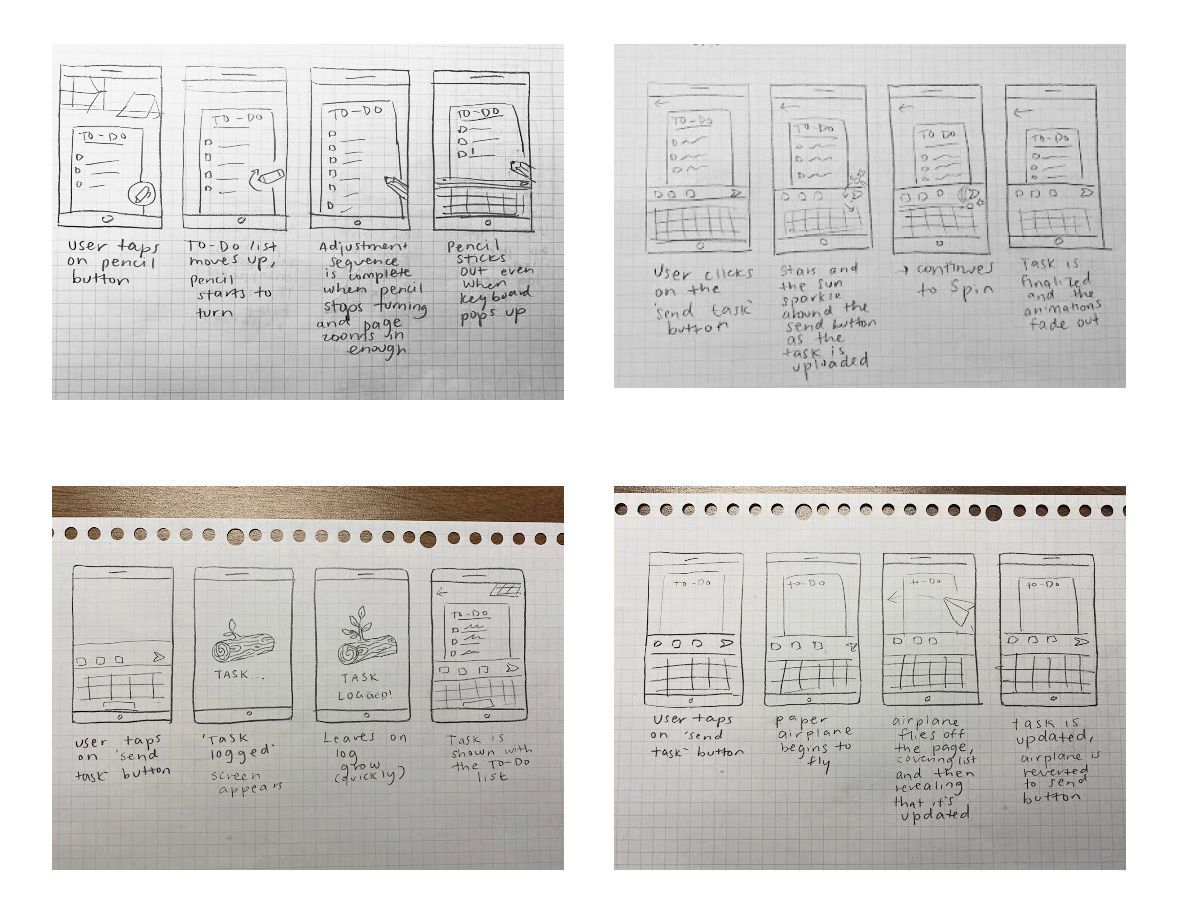 TO-DO
TO-DO
TO-DO
TO-DO
user taps
on pencil
button
TO-DO list
moves up,
pencil
starts to
turn
Adjustment
sequence
is complete
when pencil
stops turning
and page
zooms in
enough
Pencil
sticks
out even
when
keyboard
pops up
TO-DO
TO-DO
TO DO
TO-DO
user clicks
on the
'send task'
button
stars and
the sun
sparkle
around the
send button
as the
task is
uploaded
→ continues
to spin
Task is
finalized
and the
animations
fade out
TASK...
TASK
LOGGED!
TO-DO
user taps
on 'send
task' button
'Task
logged'
screen
appears
Leaves on
log
grow
(quickly)
Task is
shown with
the TO-DO
list
TO-DO
TO-DO
TO-DO
TO-DO
user taps
on 'send
task' button
paper
airplane
begins to
fly
airplane
flies off
the page,
covering list
and then
revealing
that it's
updated
task is
updated,
airplane is
reverted
to send
button